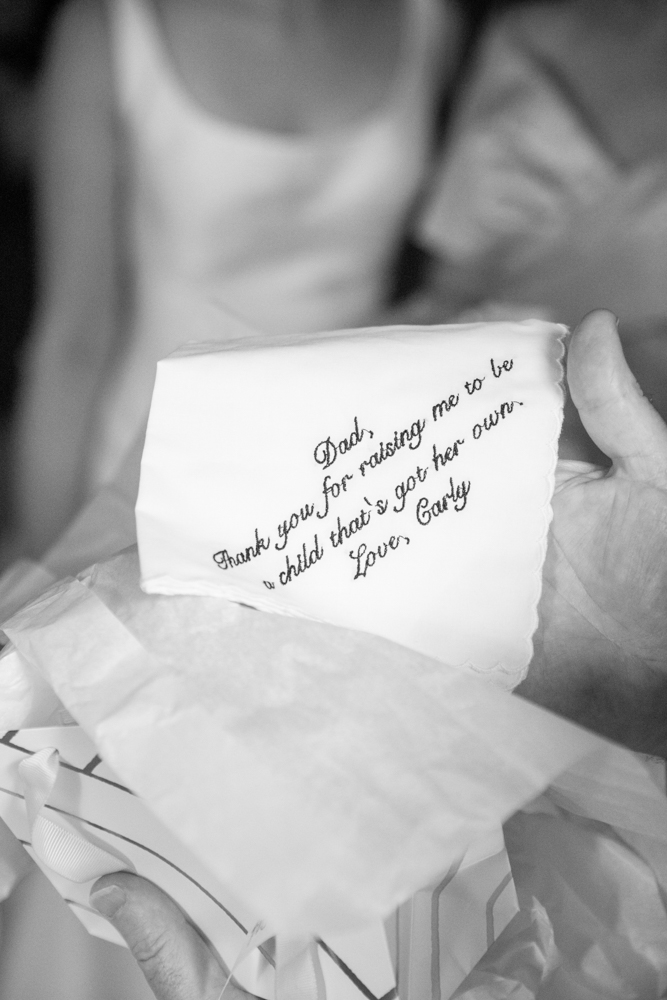 Dad,
Thank you for raising me to be
a child that's got her own.
Love, Carly